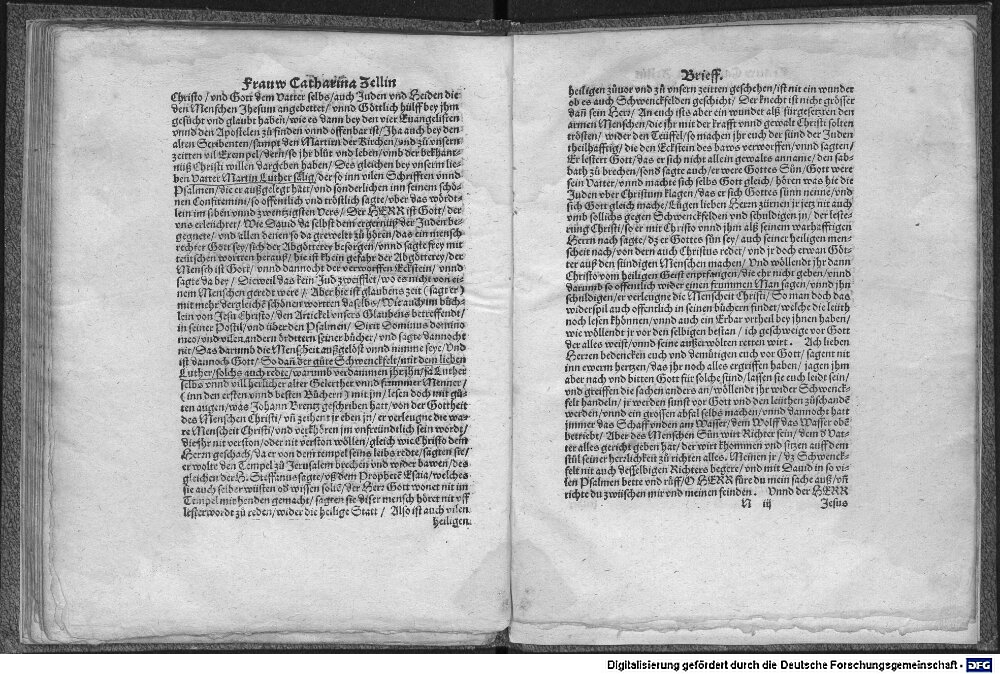 Frauw Catharina Zellin
Christo / vnd Gott dem Vatter selbs / auch Juden vnd Heiden die
den Menschen Jhesum angebettet / vnnd Göttlich hülff bey jhm
gesücht vnd glaubt haben / wie es dann bey den vier Euangelisten
vnnd den Apostelen zü finden vnnd offenbar ist / Jha auch bey den
alten Scribenten / sampt den Martirn der Kirchen / vnd zü vnsern
zeitten vil Exempel / dern / so jhr blüt vnd leben / vmb der bekhant-
nüß Christi willen dargeben haben / Des gleichen bey vnserm lie-
ben Vatter Martin Luther selig / der so inn vilen Schrifften vnnd
Psalmen / die er außgelegt hatt / vnd sonderlichen inn seinem schö-
nen Confitemini / so offentlich vnd tröstlich sagte / vber das wördt-
lein im siben vnnd zwentzigsten Vers / Der HERR ist Gott / der
vns erleuchtet / Wie Dauid da selbest dem ergernüß der Juden be-
gegnete / vnd allen denen so da grewelt zü hören / das ein mensch
rechter Gott sey / sich der Abgötterey besorgen / vnnd sagte frey mit
teütschen wortten herauß / hie ist khein gefahr der Abgötterey / der
Mensch ist Gott / vnnd dannocht der verworffen Eckstein / vnnd
sagte da bey / Dieweil das kein Jud zweifflet / wo es nicht von ei-
nem Menschen geredt were / Aber hie ist glaubens zeit ( sagt er )
mit mehr vergleichē schönen wortten daselbs / Wie auch im büch-
lein von Jesu Christo / den Artickel vnsers Glaubens betreffendt /
in seiner Postil / vnd über den Psalmen / Dixit Dominus domino
meo / vnd vilen andern ördttern seiner bücher / vnd sagte dannocht
nit / Das darumb die Menscheit außgelöst vnnd nimme seye / Vnd
ist dannoch Gott / So dañ der güte Schwenckfelt / mit dem lieben
Luther / solchs auch redte / warumb verdammen jhr jhn / ja Luther
selbs vnnd vill herlicher alter Gelerther vnnd frummer Menner /
( inn den ersten vnnd besten Büchern ) mit jm / lesen doch mit gü-
ten augen / was Johann Brentz geschriben hatt / von der Gottheit
des Menschen Christi / vñ zeihent jr eben jn / er verleugne die wa-
re Menscheit Christi / vnd verkhören jm vnfreündtlich sein wordt /
die jhr nit verston / oder nit verston wöllen / gleich wie Christo dem
Herrn geschach / da er von dem tempel seins leibs redte / sagten sie /
er wolte den Tempel zü Jerusalem brechen vnd wider bawen / des
gleichen der H. Steffanus sagte / vß dem Prophetē Esaia / welches
sie auch selber wüsten ob wissen soltē / der Herr Gott wonet nit im
Tempel mit henden gemacht / sagten sie diser mensch höret nit vff
lesterwordt zü reden / wider die heilige Statt / Also ist auch vilen
heiligen
Brieff.
heiligen züuor vnd zü vnsern zeitten geschehen / ist nit ein wunder
ob es auch Schwenckfelden geschicht / Der knecht ist nicht grösser
dañ sein Herr / An euch ists aber ein wunder alß fürgesetzten den
armen Menschen / die jhr mit der krafft vnnd gewalt Christi solten
trösten / wider den Teüffel / so machen jhr euch der sünd der Juden
theilhafftig / die den Eckstein des hauws verworffen / vnnd sagten /
Er lestert Gott / das er sich nicht allein gewalts anname / den sab-
bath zü brechen / sond sagte auch / er were Gottes Sün / Gott were
sein Vatter / vnnd machte sich selbs Gott gleich / hören was hie die
Juden vber Christum klagen / das er sich Gottes sünn nenne / vnd
sich Gott gleich mache / Lügen lieben Herrn zürnen jr jetz nit auch
vmb sollichs gegen Schwenckfelden vnd schuldigen jn / der leste-
rung Christi / so er mit Christo vnnd jhm alß seinem warhafftigen
Herrn nach sagte / dz er Gottes sün sey / auch seiner heiligen men-
scheit nach / von dern auch Christus redet / vnd jr doch etwan Göt-
ter auß den sündigen Menschen machen / Vnd wöllendt jhr dann
Christo vom heiligen Geist enpfangen / die ehr nicht geben / vnnd
darumb so offentlich wider einen frummen Man sagen / vnnd jhn
schuldigen / er verleugne die Menscheit Christi / So man doch das
widerspil auch offentlich in seinen büchern findet / welche die leüth
noch lesen khönnen / vnnd auch ein Erbar vrtheil bey jhnen haben /
wie wöllendt jr vor den selbigen bestan / ich geschweige vor Gott
der alles weist / vnnd seine außerwölten retten wirt. Ach lieben
Herren bedencken euch vnd demütigen euch vor Gott / sagent nit
inn ewerm hertzen / das jhr noch alles ergriffen haben / jagen jhm
aber nach vnd bitten Gott für solche sünd / lassen sie euch leidt sein /
vnd greiffen die sachen anders an / wöllendt jhr wider Schwenck-
felt handeln / jr werden sunst vor Gott vnd den leüthen züschandē
werden / vnnd ein grossen abfal selbs machen / vnnd dannocht hatt
jimmer das Schaff vnden am Wasser / dem Wolff das Wasser obē
betriebt / Aber des Menschen Sün wirt Richter sein / dem d Vat-
ter alles gericht geben hat / der wirt khommen vnd sitzen auff dem
stül seiner herrlichkeit zü richten alles. Meinen jr / dz Schwenck-
felt nit auch desselbigen Richters begere / vnd mit Dauid in so vi-
len Psalmen bette vnd rüff / O HERR füre du mein sache auß / vñ
richte du zwischen mir vnd meinen feinden. Vnnd der HERR
N iij Jesus
Digitalisierung gefördert durch die Deutsche Forschungsgemeinschaft - DFG